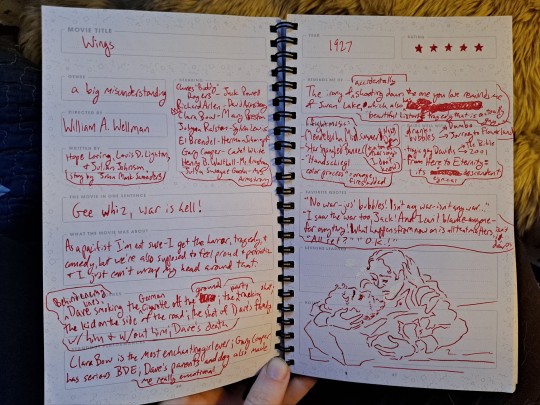 MOVIE TITLE
Wings
GENRE
a big misunderstanding
DIRECTED BY
William A. Wellman
WRITTEN BY
Hope Loring, Louis D. Lighton,
& Julian Johnson,
story by John Monk Saunders
STARRING
Charles "Buddy"
Rogers - Jack Powell
Richard Arlen - David Armstrong
Clara Bow - Mary Preston
Jobyna Ralston - Sylvia Lewis
El Brendel - Herman Schwimpf
Gary Cooper - Cadet White
Henry B. Walthall - Mr. Armstrong
Julia Swayne Gordon - Mrs.
Armstrong
THE MOVIE IN ONE SENTENCE
Gee whiz, war is hell!
WHAT THE MOVIE WAS ABOUT
As a pacifist I'm not sure - I get the horror, tragedy, +
comedy, but we're also supposed to feel proud + patriotic
+ I just can't wrap my head around that.
Dave smoking the German
cigarette off the ground; the tracking party shot;
the kid on the side of the road; the shot of Dave's family
w/ him + w/out him; Dave's death
Clara Bow is the most enchanting girl ever; Gary Cooper
has serious BDE; Dave's parents and dog also made
me really emotional
YEAR
1927
RATING
★ ★ ★ ★ ★
REMINDS ME OF
accidentally
The irony of shooting down the one you love reminds me
of Swan Lake, which is also
beautiful
tragedy
Star Spangled Banner
Handschiegl
color process - orange
fire
drunk
bubbles
Dumbo
The Bible
From Here to Eternity
its descendent
FAVORITE QUOTES
"No war - jus' bubbles! Isn' any war - isn't any war."
"I saw the war too, Jack! And I can't blame anyone -
for anything! What happens from now on is all that matters
"All set?" "O.K.!"
LESSONS LEARNED